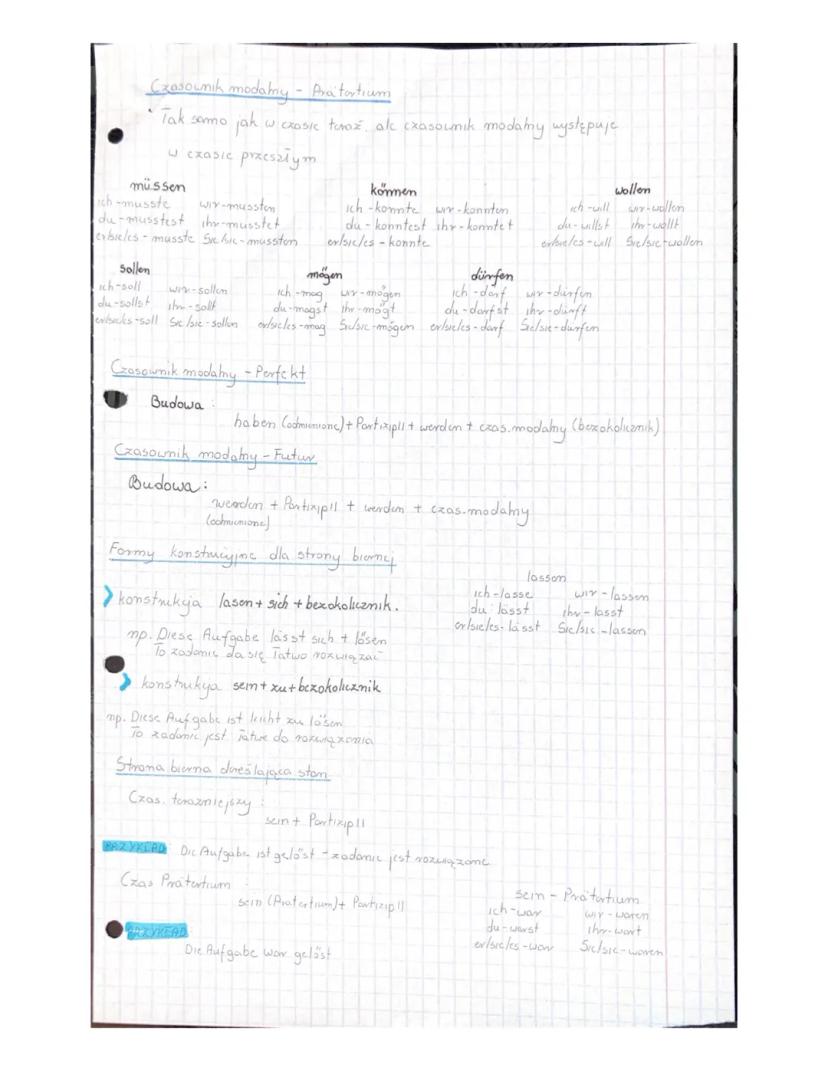 Czasownik modalny - Prätertium
Tak samo jak w czasie teraź. ale czasownik modalny występuje
w czasie przeszłym
müssen
ich - musste wir - mussten
du - musstest ihr - musstet
er/sie/es - musste Sie/sie - mussten
können
ich - konnte wir - konnten
du - konntest ihr - konntet
er/sie/es - konnte
wollen
ich - will wir - wollen
du - willst ihr - wollt
er/sie/es - will Sie/sie - wollen
sollen
ich - soll wir - sollen
du - sollst ihr - sollt
er/sie/es - soll Sie/sie - sollen
mögen
ich - mag wir - mögen
du - magst ihr - mögt
er/sie/es - mag Sie/sie - mögen
dürfen
ich - darf wir - dürfen
du - darfst ihr - dürft
er/sie/es - darf Sie/sie - dürfen
Czasownik modalny - Perfekt
Budowa:
haben (odmienione) + PartizipII + werden + czas. modalny (bezokolicznik)
Czasownik modalny - Futur
Budowa:
werden + PartizipII + werden + czas. modalny
(odmienione)
Formy konstrucyjne dla strony biernej
konstrukcja lasen + sich + bezokolicznik.
np. Diese Aufgabe lässt sich + lösen
To zadanie da się łatwo rozwiązać
lassen
ich - lasse wir - lassen
du lässt ihr - lasst
er/sie/es - lässt Sie/sie - lassen
konstrukcja sein + zu + bezokolicznik
np. Diese Aufgabe ist leicht zu lösen
To zadanie jest łatwe do rozwiązania
Strona bierna określająca stan
Czas. teraźniejszy:
sein + PartizipII
PRZYKŁAD Die Aufgabe ist gelöst - zadanie jest rozwiązane
Czas Prätertium
sein (Prätertium) + PartizipII
sein - Prätertium
ich - war wir - waren
du - warst ihr - wart
er/sie/es - war Sie/sie - waren
PRZYKŁAD
Die Aufgabe war gelöst